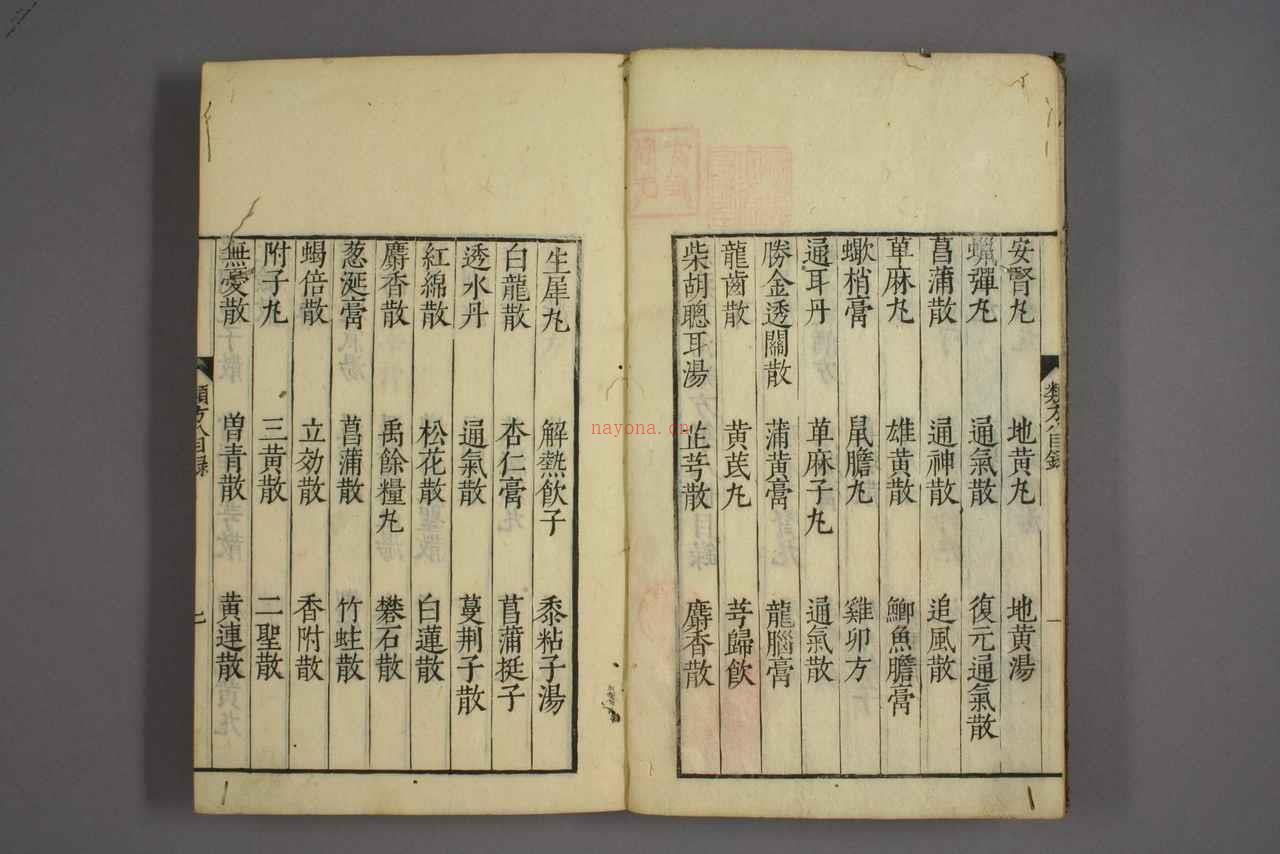 安腎丸　地黃丸　地黃湯
蠟彈丸　通氣散　復元通氣散
菖蒲散　通神散　追風散
草麻丸　雄黃散　鯽魚膽膏
蠍梢膏　鼠膽丸　雞卵方
通耳丹　草麻子丸　通氣散
勝金透關散　蒲黃膏　龍腦膏
龍齒散　黃芪丸　芎歸飲
柴胡聰耳湯　芷芎散　麝香散
生犀丸　解熱飲子　黍粘子湯
白龍散　杏仁膏　菖蒲挺子
透水丹　通氣散　蔓荊子散
紅綿散　松花散　白蓮散
麝香散　禹餘糧丸　礬石散
葱涎膏　菖蒲散　竹蛀散
蝎倍散　立効散　香附散
附子丸　三黃散　二聖散
無憂散　曾青散　黃連散
類方　目錄
nayona.cn